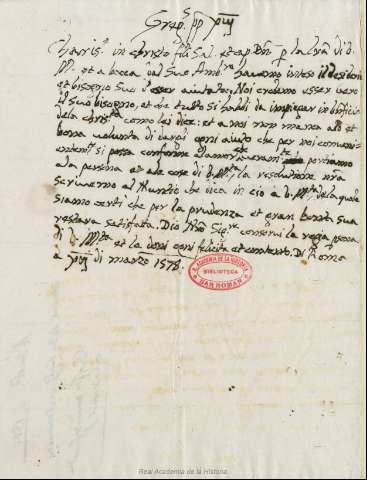 Greg.s pp xiij
Charis.e in christo fili Sal. et ap. Bên. p la Lrã di V.
M.tà et a bocca dal Suo Amb.re havemo inteso il desiderio
et bisogno Suo d'esser aiutato. Noi credemo esser vero
il suo bisogno, et che tutto si habbi da impiegar in beneficio
dela christ.tà como lei dice: et a noi non manca animo et
bona volunta di darli ogni aiuto che per noi
si possa conforme al amor che portiamo
ala persona et ale cose di V. M.tà, la resolutione nrã
scrivemo al Nuntio che dica in ciò a V. M.tà dela quale
siamo certi che per la prudenza et gran bontà sua
restara satisfata. Dio nrõ Sig.re conservi la regia persona
di V. M.tà et la doni ogni felicità et contento. Di Roma
a xiij di marzo 1578.
R. ACADEMIA DE LA HISTORIA
BIBLIOTECA
SAN ROMAN
Real Academia de la Historia